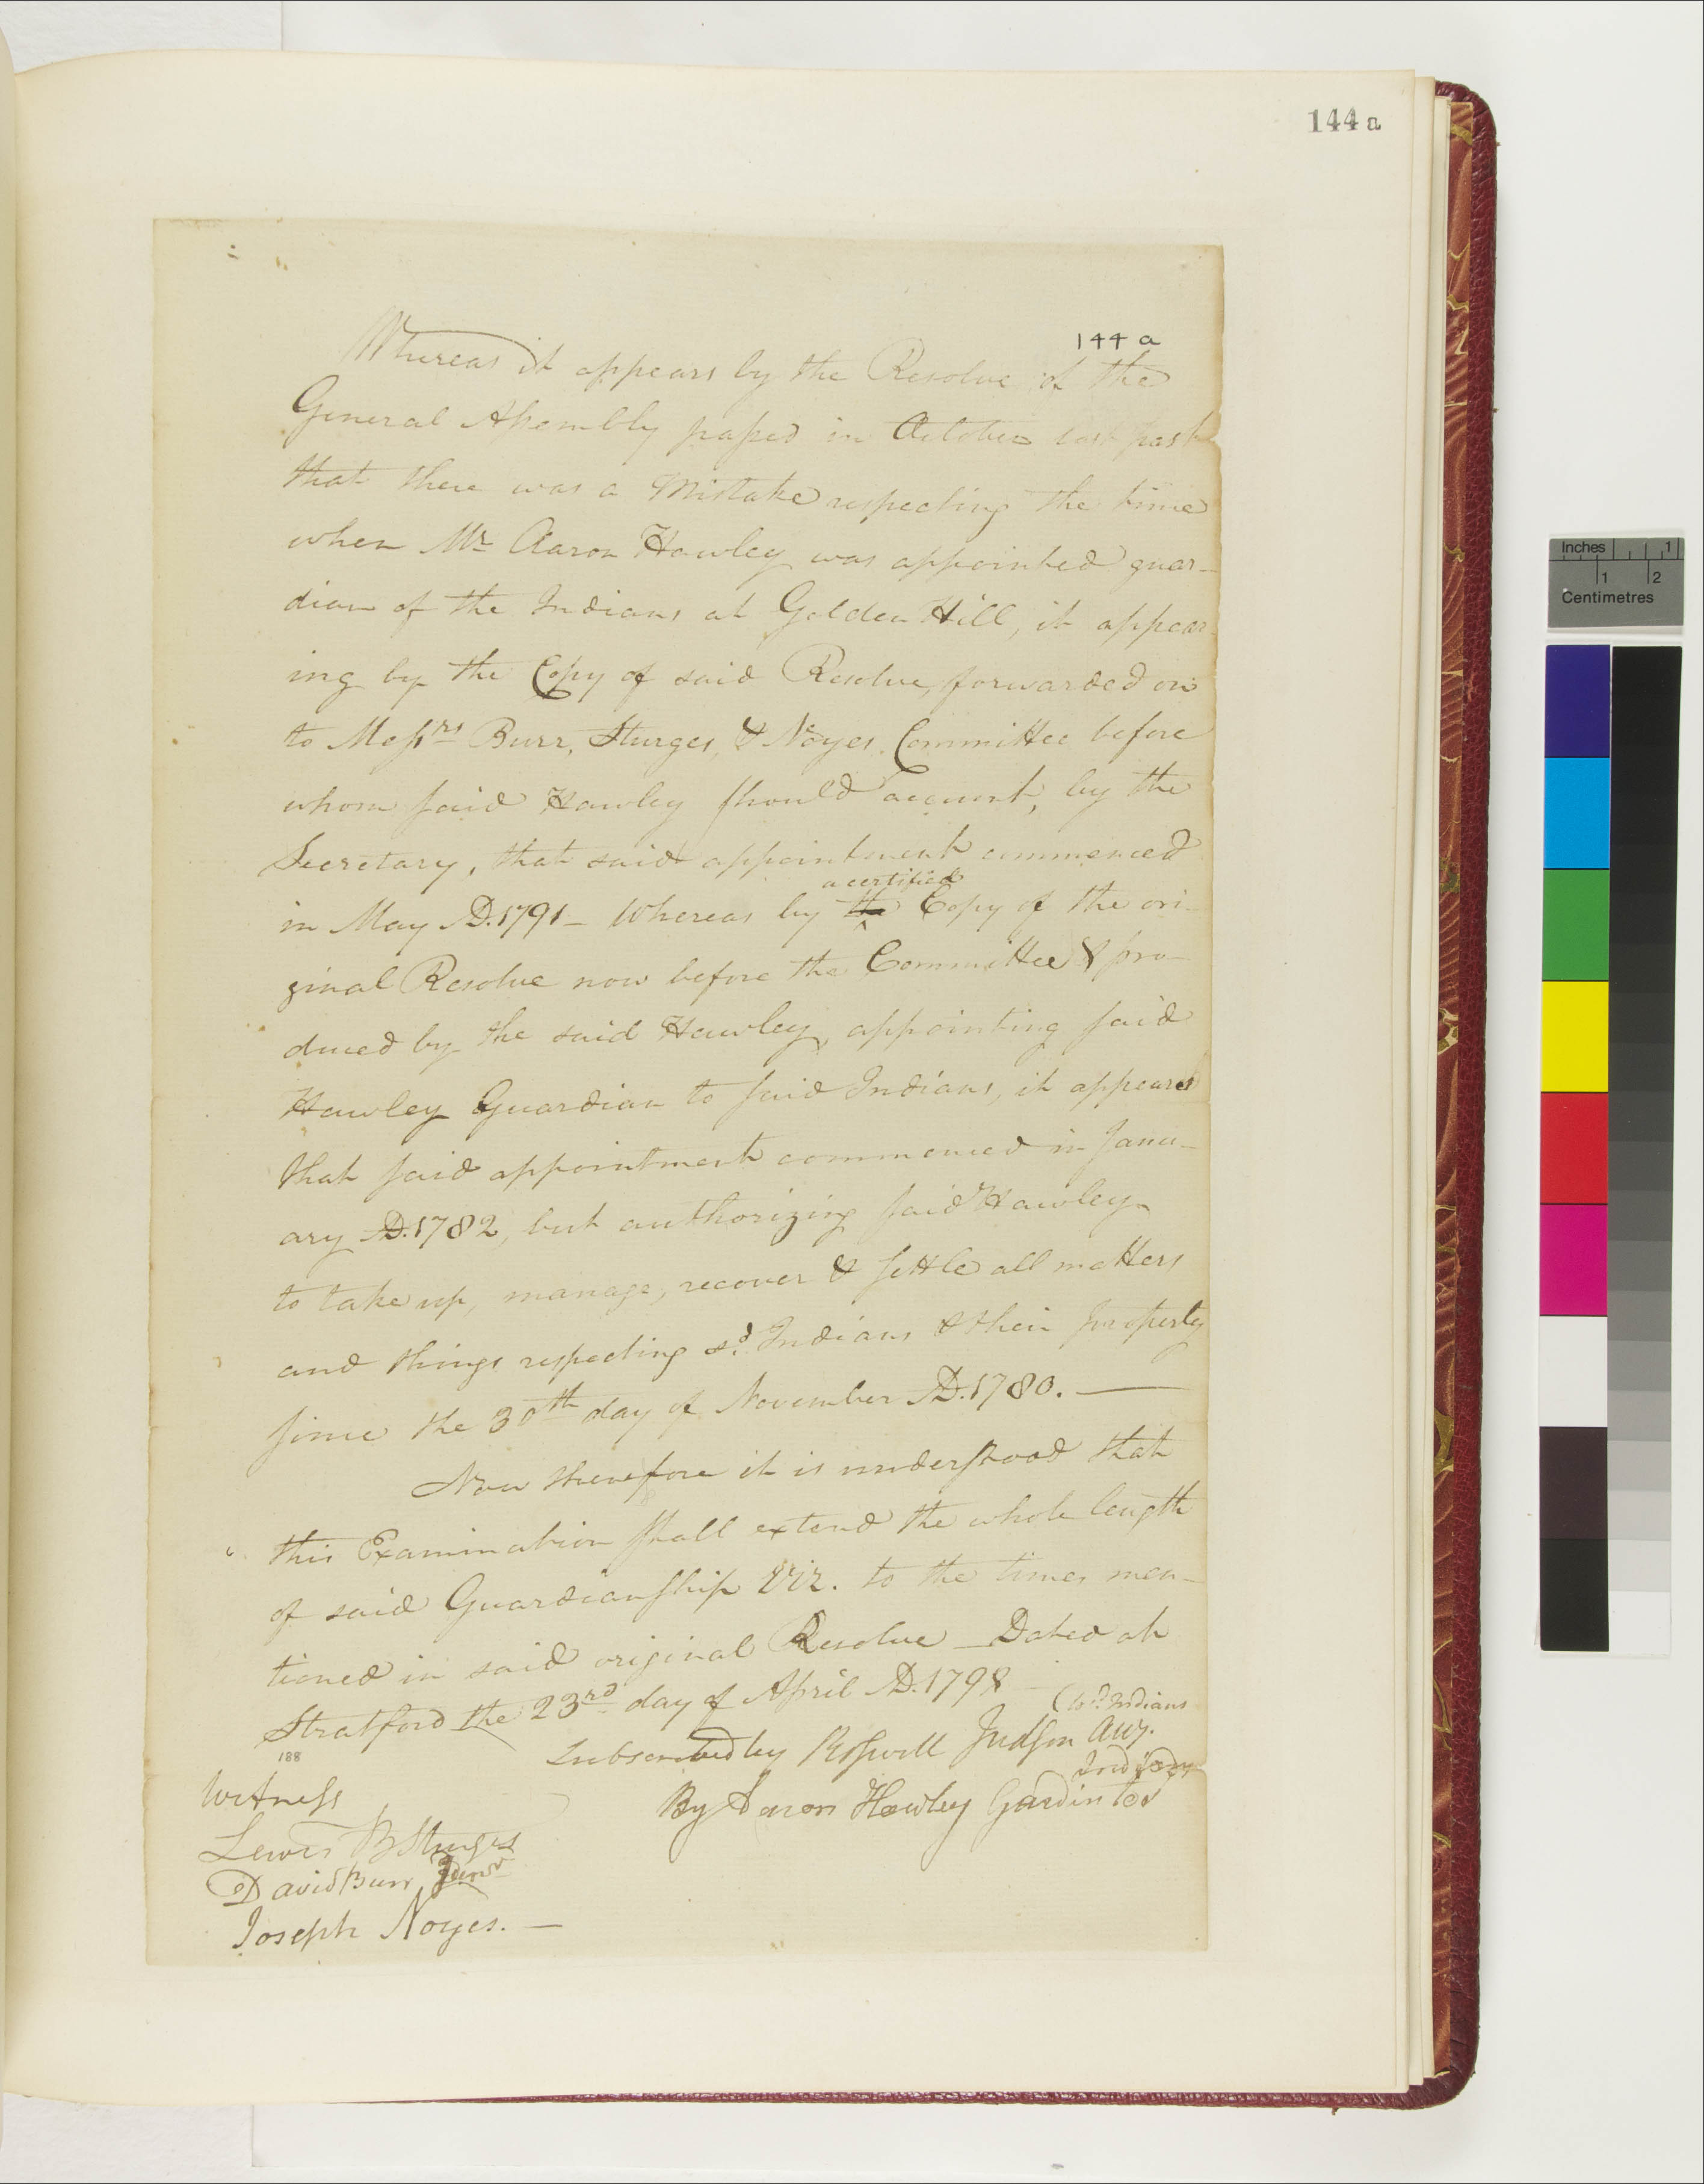 144 a
144 a
Whereas it appears by the Resolve of the
General Assembly passed in October last past
that there was a Mistake respecting the time
when Mr Aaron Hawley was appointed guar-
dian of the Indians at Golden Hill, it appear-
ing by the Copy of said Resolve, forwarded on
to Messrs Burr, Sturges, & Noyes, Committee before
whom said Hawley should account, by the
Secretary, that said appointment commenced
a certified
in May AD. 1791 - Whereas by the Copy of the ori-
ginal Resolve now before the Committee & pro-
duced by the said Hawley, appointing said
Hawley Guardian to said Indians, it appears
that said appointment commenced in Janu-
ary AD. 1782, but authorizing said Hawley
to take up, manage, recover & settle all matters
and things respecting sd. Indians & their property
since the 30th day of November AD. 1780. —
Now therefore it is understood that
this Examination shall extend the whole length
of said Guardianship Viz. to the times men-
tioned in said original Resolve — Dated at
Stratford the 23rd day of April AD. 1798
sd. Indians
Subscribed by Roswell Judson Atty.
188
Witness
By Aaron Hawley Gardin to
Lewis B Sturges
David Burr Junr
Joseph Noyes. —
Inches 1
1 2
Centimetres